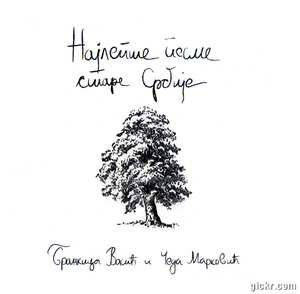 Најлепше песме
старе Србије
Бранкица Васић и Чеда Марковић
gickr.com